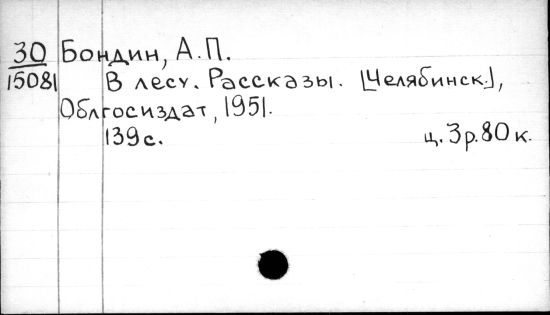 30 Бондин, А.П.
15081 В лесу. Рассказы. [Челябинск],
Облгосиздат, 1951.
139 с. ц. 3р.80к.